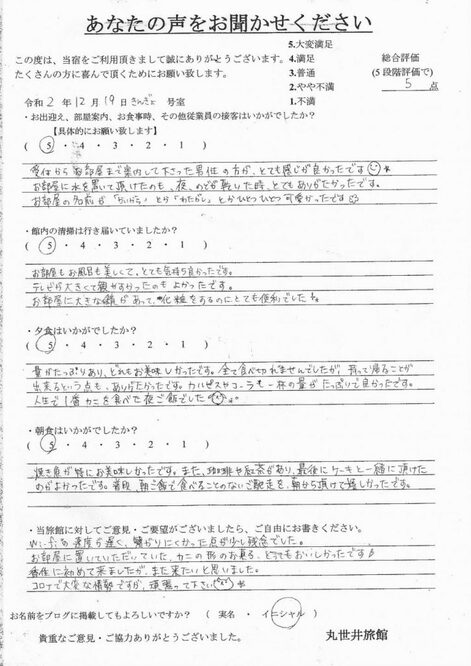 あなたの声をお聞かせください
この度は、当宿をご利用頂きまして誠にありがとうございます。
たくさんの方に喜んで頂くためにお願い致します。
5.大変満足
4.満足
3.普通
2.やや不満
1.不満
総合評価
(5段階評価で)
5点
令和2年12月19日 号室
・お出迎え、部屋案内、お食事時、その他従業員の接客はいかがでしたか？
【具体的にお願い致します】
( 5 ・ 4 ・ 3 ・ 2 ・ 1 )
受付からお部屋まで案内して下さった男性の方が、とても感じが良かったです
お部屋に水を置いて頂けたのも、夜、のどが乾いた時、とてもありがたかったです。
お部屋の名前が とか「わたがし」とかひとつひとつ可愛かったです
・館内の清掃は行き届いていましたか？
( 5 ・ 4 ・ 3 ・ 2 ・ 1 )
お部屋もお風呂も美しくて、とても気持ち良かったです。
テレビが大きくて観やすかったのもよかったです。
お部屋に大きな鏡があって、化粧をするのにとても便利でした
・夕食はいかがでしたか？
( 5 ・ 4 ・ 3 ・ 2 ・ 1 )
量がたっぷりあり、どれもお美味しかったです。全て食べ切れませんでしたが、持って帰ることが
出来るという点も、ありがたかったです。カルピスやコーラも一杯の量がたっぷりで良かったです。
人生で1番カニを食べた夜ご飯でした
・朝食はいかがでしたか？
( 5 ・ 4 ・ 3 ・ 2 ・ 1 )
焼き魚が特にお美味しかったです。また、珈琲や紅茶があり、最後にケーキと一緒に頂けた
のがよかったです。普段、朝ご飯で食べることのないご馳走を、朝から頂けて嬉しかったです。
・当旅館に対してご意見・ご要望がございましたら、ご自由にお書きください。
Wi-Fiの速度が遅く、繋がりにくかった点が少し残念でした。
お部屋に置いていただいていた、カニの形のお菓子、とってもおいしかったです
香住に初めて来ましたが、また来たいと思いました。
コロナで大変な情勢ですが、頑張って下さい
お名前をブログに掲載してもよろしいですか？ ( 実名 ・ イニシャル )
貴重なご意見・ご協力ありがとうございました。
丸世井旅館